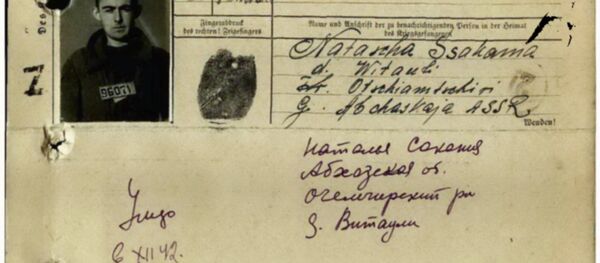 96071
Fingerabdruck
des rechten! Zeigefingers
Name und Anschrift der zu benachrichtigenden Person in der Heimat
des Kriegsgefangenen
Natascha Ssakama
d. Witauli
Otschiamtschiri
G. Abchaskaja ASSR
Wenden!
Наталья Сакания
Абхазская о.
Очемчирский рн
д. Витаули
6 XII 42.